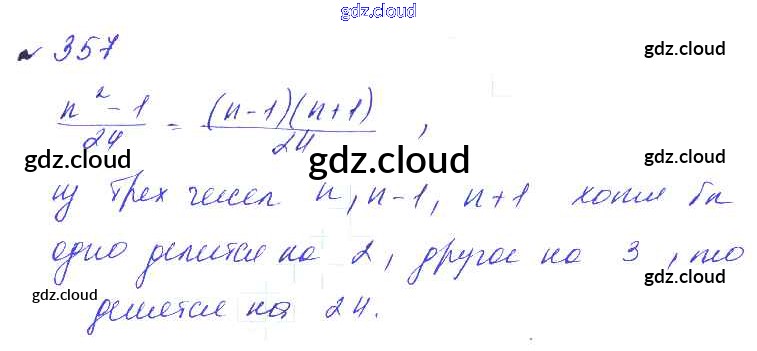 gdz.cloud
№ 357
gdz.cloud
n² - 1 / 24 = (n-1)(n+1) / 24 ,
gdz.cloud gdz.cloud gdz.cloud
из трех чисел n, n-1, n+1 хотя бы
одно делится на 2, другое на 3, то
gdz.cloud
gdz.cloud
делится на 24.